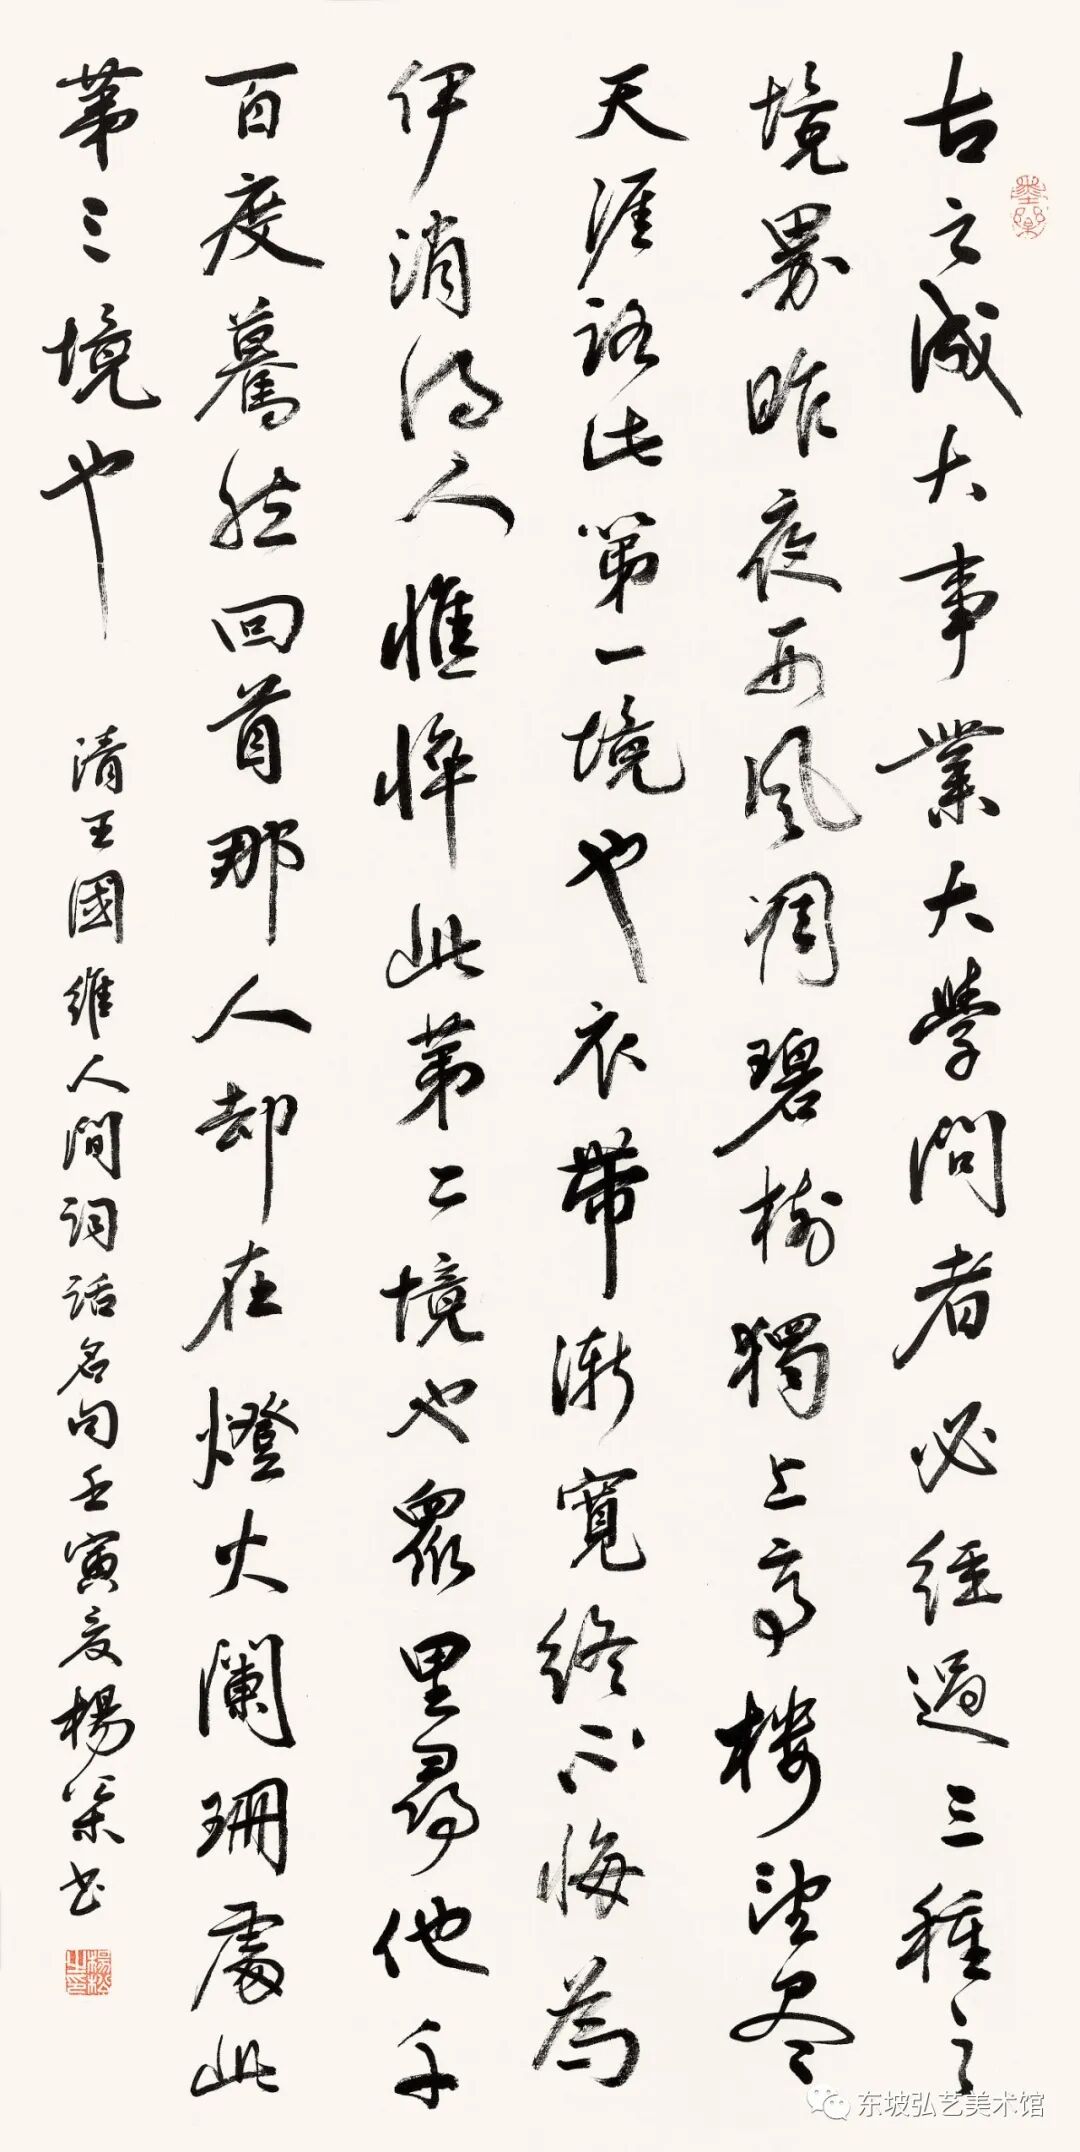 古之成大事業大學問者必經過三種之
境界昨夜西風凋碧樹獨上高樓望尽
天涯路此第一境也衣帶漸寬終不悔為
伊消得人憔悴此第二境也眾里尋他千
百度驀然回首那人却在燈火闌珊處此
第三境也
清王國維人間詞話名句壬寅夏楊柒书
东坡弘艺美术馆